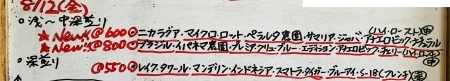 8/12(金)
○浅〜中深煎り (ハイ・ロースト)㊥
★New!! @600○ニカラグア・マイクロ・ロット・ペラルタ農園・サマリア・ジャバ・アナエロビック・ナチュラル
★New!! @800○ブラジル・イパネマ農園・プレミア・クリュ・ブルー・エディション・アナエロビック・チェリー(ハイ・ロースト)㊥
○深煎り
@550○レイクタワール・マンデリン・インドネシア・スマトラ・タイガー・ブルーアイ・S-18(フレンチ)㊥